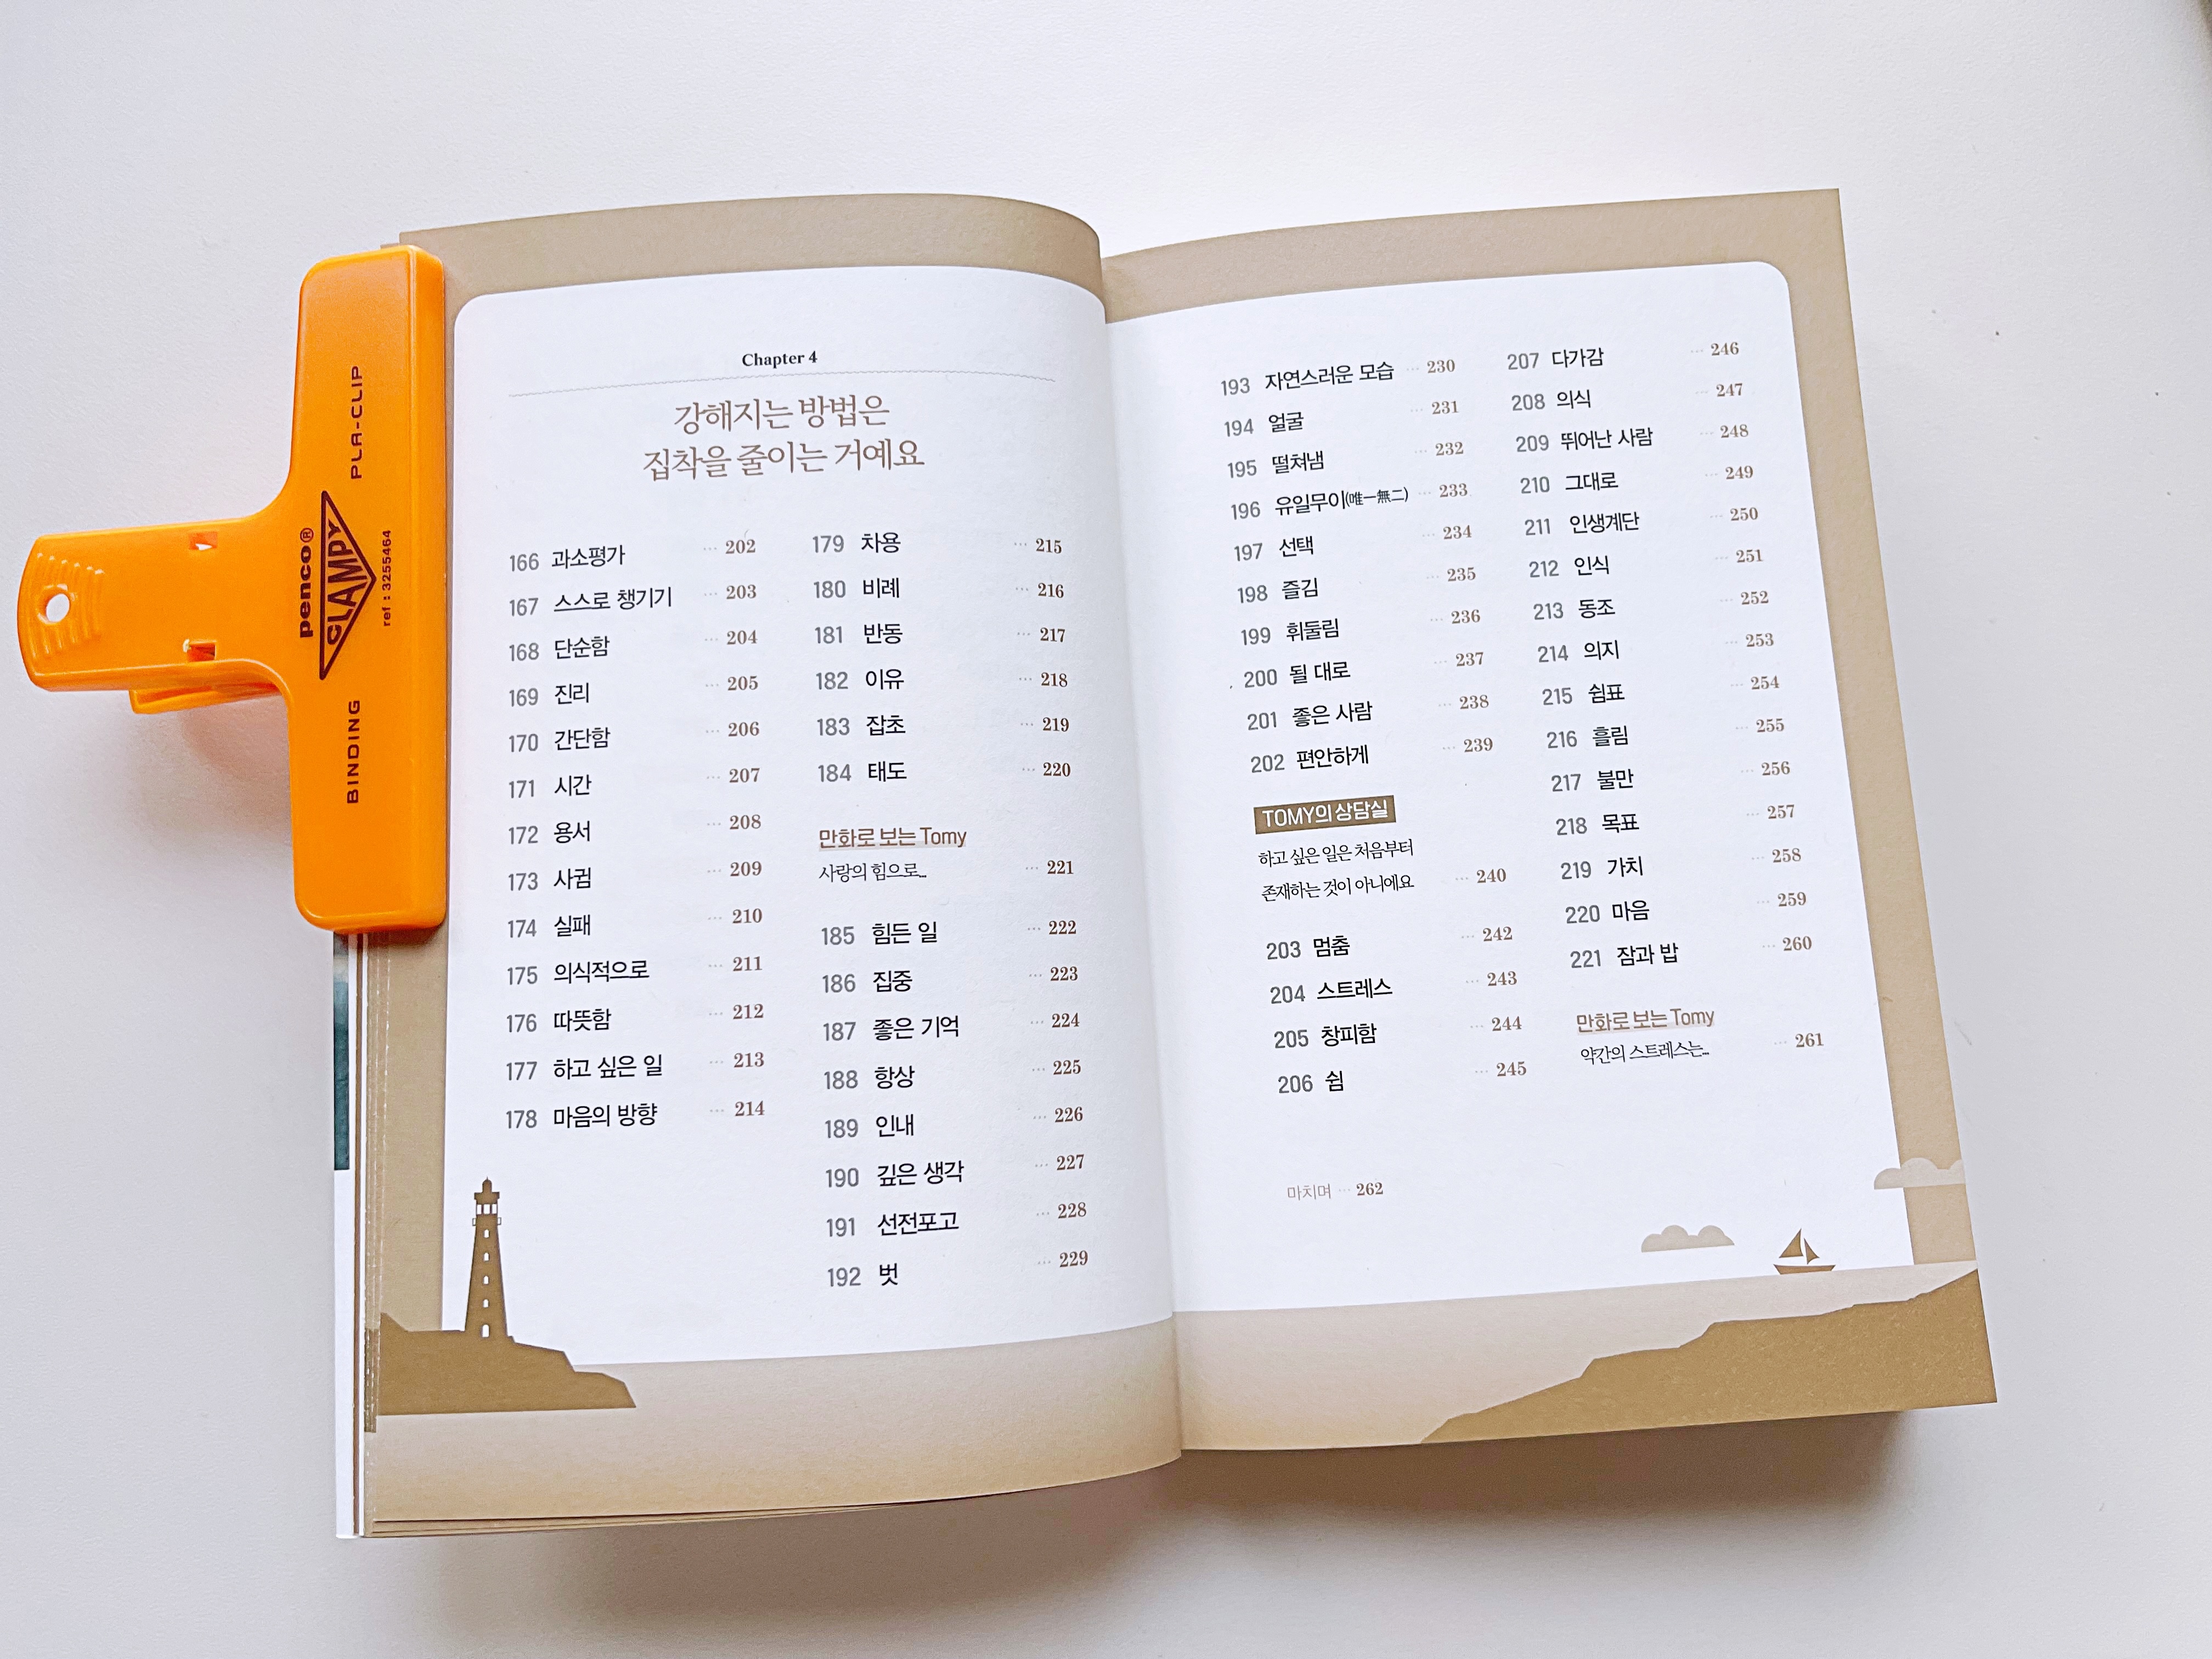 penco®
CLAMPY
PLA-CLIP
BINDING
ref : 3255464
Chapter 4
강해지는 방법은
집착을 줄이는 거예요
166 과소평가 ··· 202
167 스스로 챙기기 ··· 203
168 단순함 ··· 204
169 진리 ··· 205
170 간단함 ··· 206
171 시간 ··· 207
172 용서 ··· 208
173 사귐 ··· 209
174 실패 ··· 210
175 의식적으로 ··· 211
176 따뜻함 ··· 212
177 하고 싶은 일 ··· 213
178 마음의 방향 ··· 214
179 차용 ··· 215
180 비례 ··· 216
181 반동 ··· 217
182 이유 ··· 218
183 잡초 ··· 219
184 태도 ··· 220
만화로 보는 Tomy
사랑의 힘으로... ··· 221
185 힘든 일 ··· 222
186 집중 ··· 223
187 좋은 기억 ··· 224
188 항상 ··· 225
189 인내 ··· 226
190 깊은 생각 ··· 227
191 선전포고 ··· 228
192 벗 ··· 229
193 자연스러운 모습 ··· 230
194 얼굴 ··· 231
195 떨쳐냄 ··· 232
196 유일무이(唯一無二) ··· 233
197 선택 ··· 234
198 즐김 ··· 235
199 휘둘림 ··· 236
200 될 대로 ··· 237
201 좋은 사람 ··· 238
202 편안하게 ··· 239
TOMY의 상담실
하고 싶은 일은 처음부터
존재하는 것이 아니에요 ··· 240
203 멈춤 ··· 242
204 스트레스 ··· 243
205 창피함 ··· 244
206 쉼 ··· 245
207 다가감 ··· 246
208 의식 ··· 247
209 뛰어난 사람 ··· 248
210 그대로 ··· 249
211 인생계단 ··· 250
212 인식 ··· 251
213 동조 ··· 252
214 의지 ··· 253
215 쉼표 ··· 254
216 흘림 ··· 255
217 불만 ··· 256
218 목표 ··· 257
219 가치 ··· 258
220 마음 ··· 259
221 잠과 밥 ··· 260
만화로 보는 Tomy
약간의 스트레스는... ··· 261
마치며 ··· 262